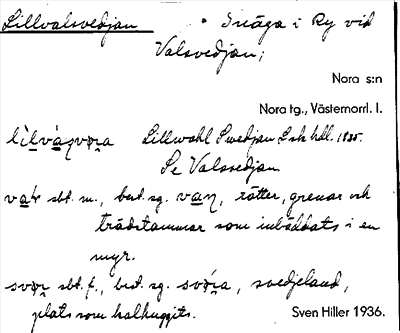 Lillvalsvedjan • Snåga i Ry vid
Valsvedjan;
Nora s:n
Nora tg., Västernorrl. l.
Lillwahl Swedjan Lsk hdl. 1835.
Se Valsvedjan
sbt. m., best. sg. rötter, grenar och
trädstammar som inbäddats i en
myr.
svǫr sbt. f., best. sg. svedjeland,
plats som kalhuggits.
Sven Hiller 1936.